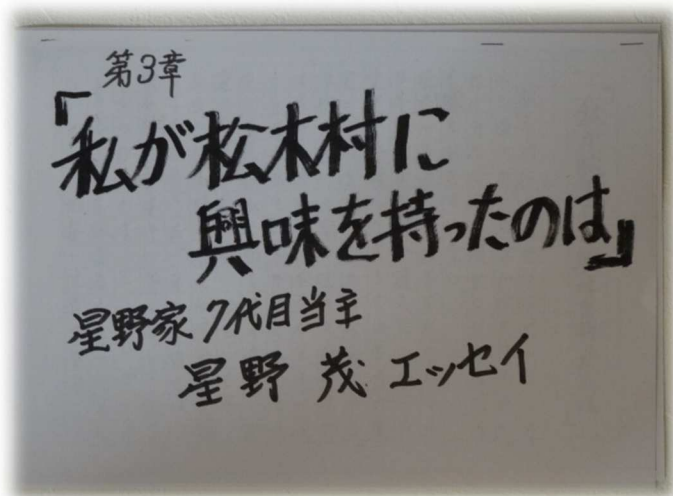 第3章
『私が松木村に
興味を持ったのは』
星野家 7代目当主
星野 茂 エッセイ